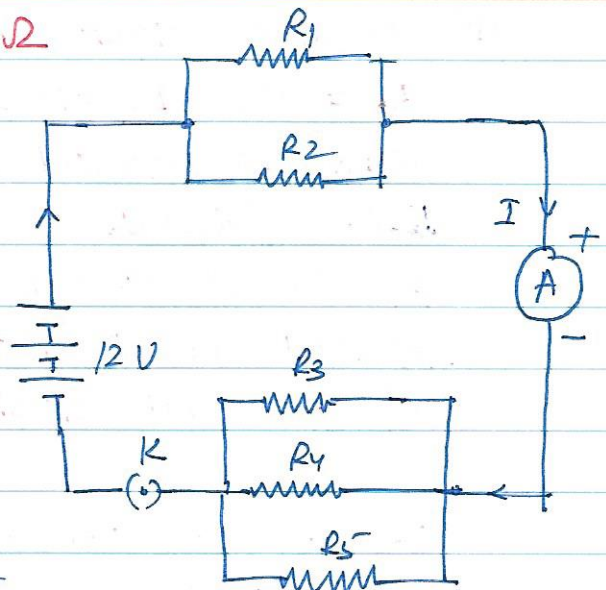 Ω
R1
R2
I
+
A
-
12 V
R3
K
R4
R5